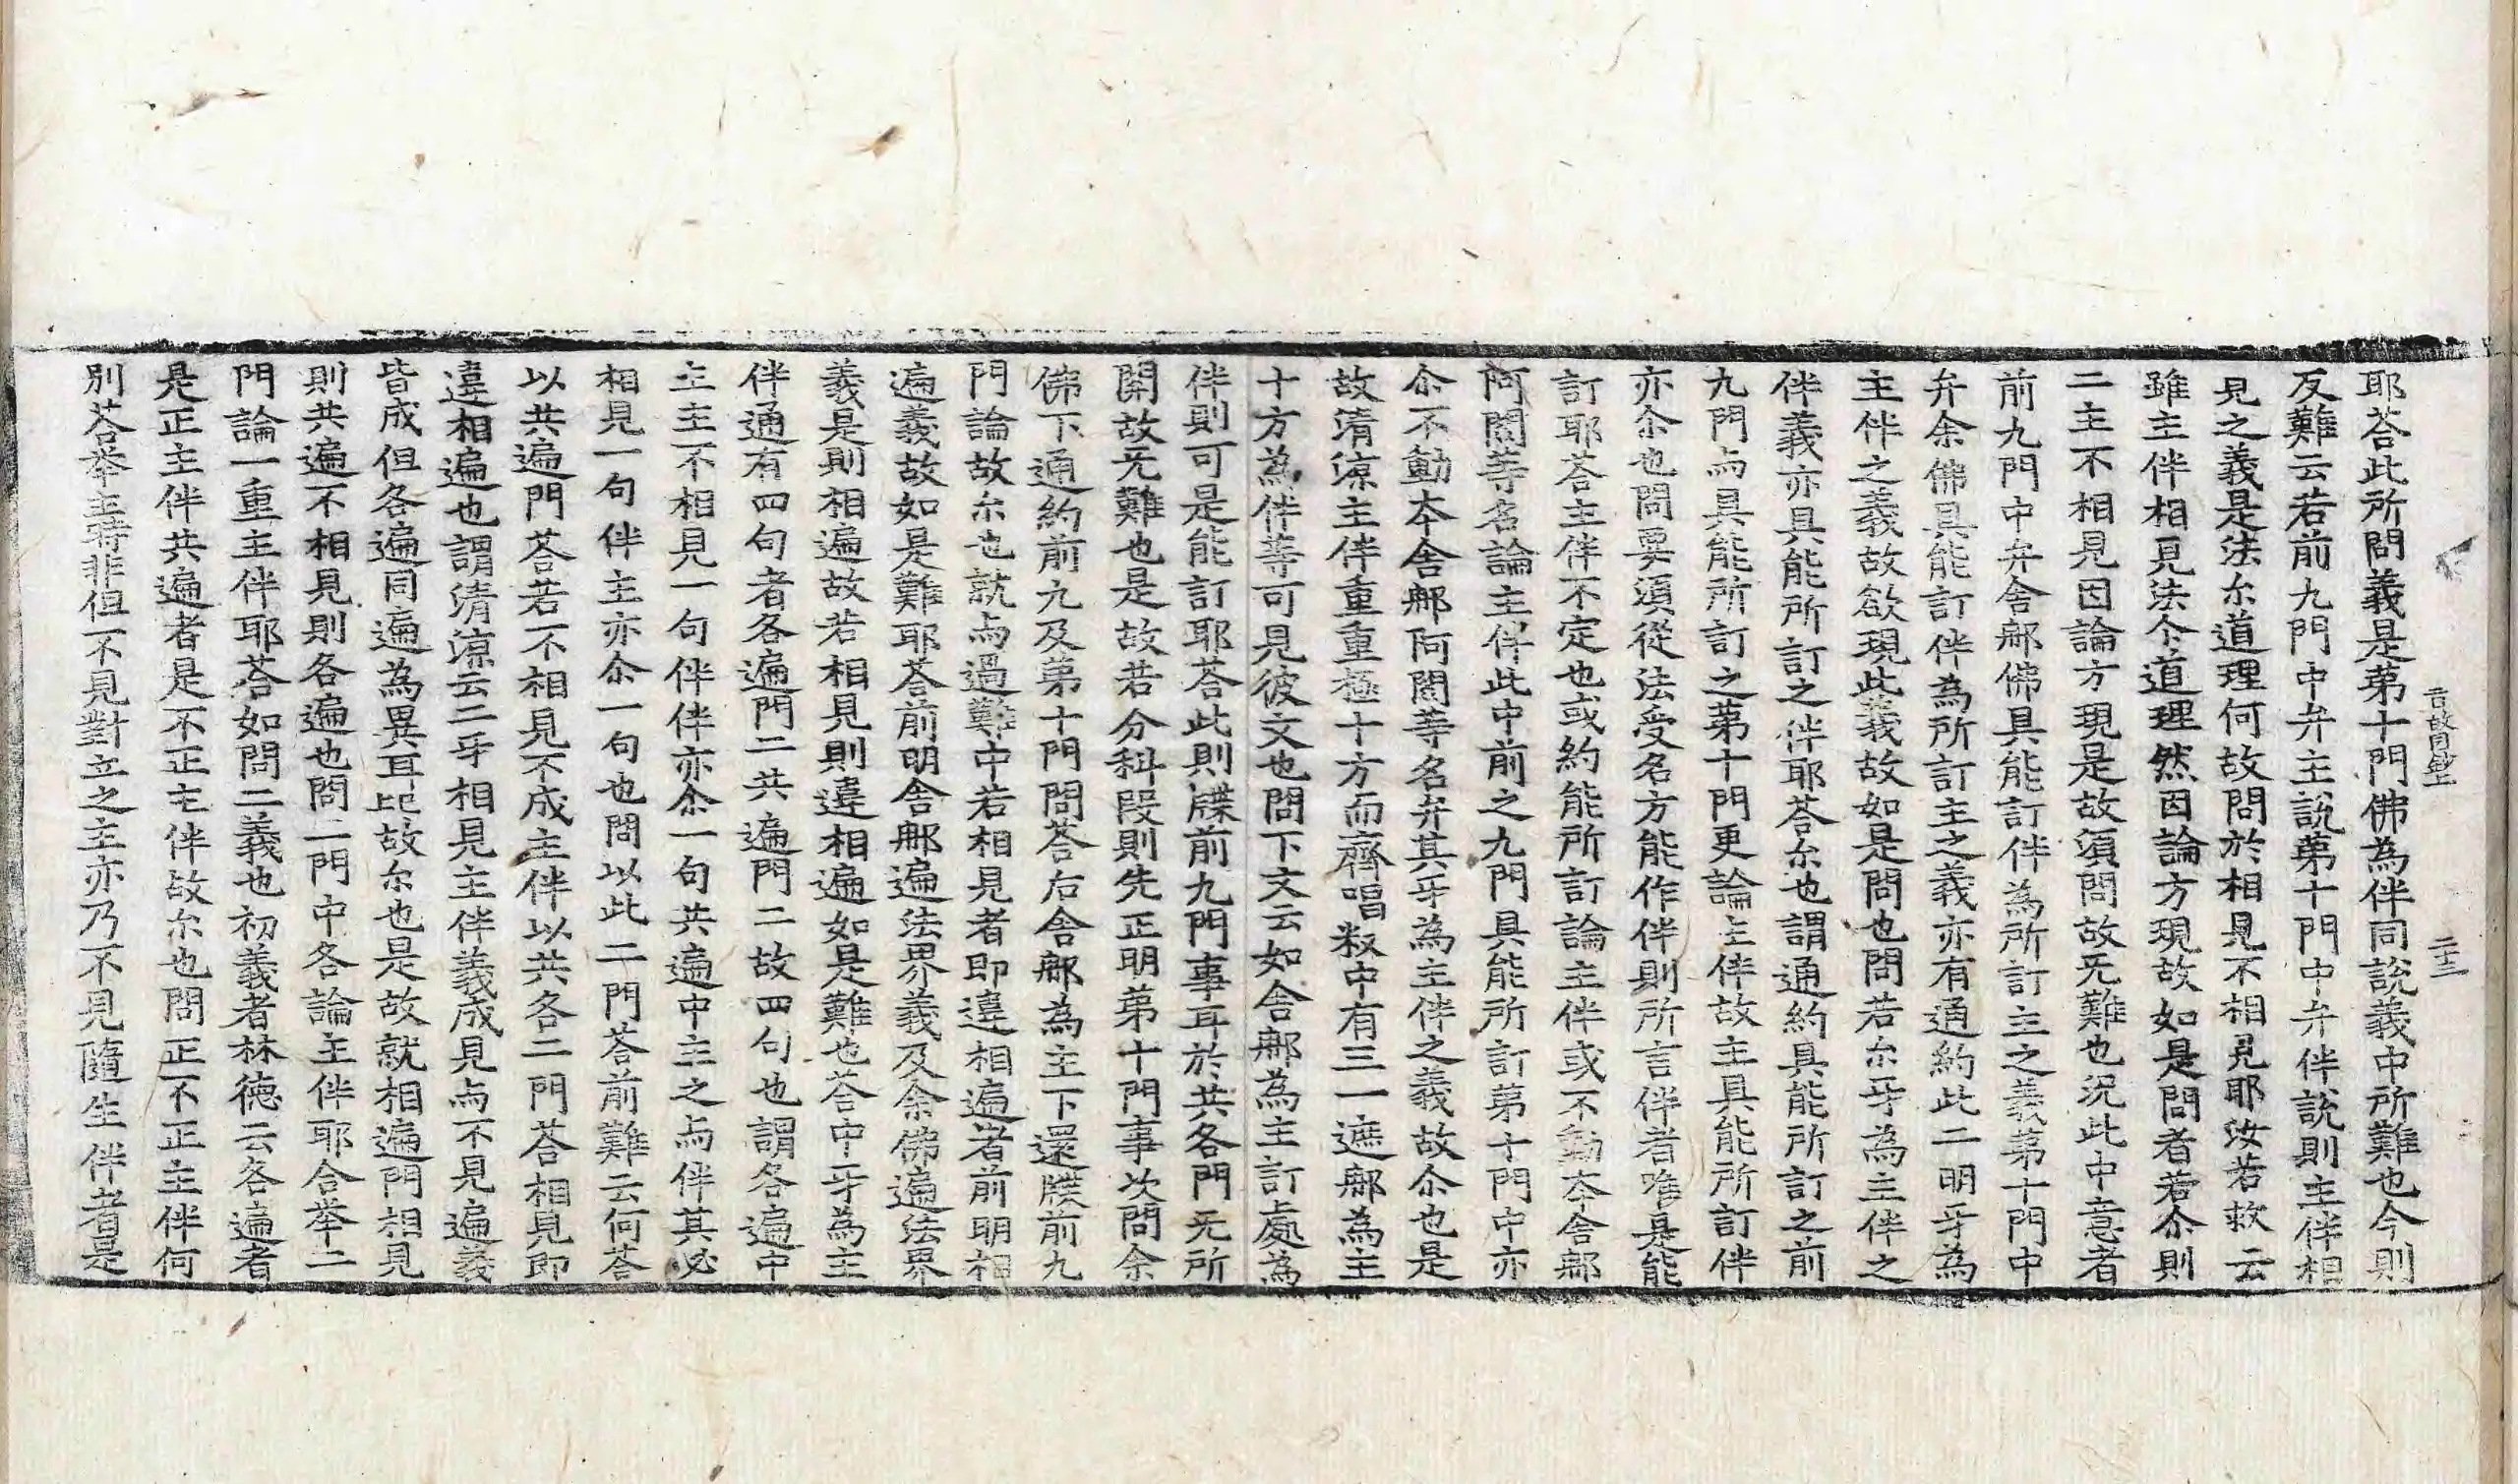 耶荅此所問義是苐十門佛為伴同說義中所難也今則
反難云若前九門中弁主說苐十門中弁伴說則主伴相
見之義是法尒道理何故問於相見不相見耶汝若救云
雖主伴相見法尒道理然因論方現故如是問者若尒則
二主不相見因論方現是故湏問故无難也况此中意者
前九門中弁舍那佛具能訂伴為所訂主之義苐十門中
弁余佛具能訂伴為所訂主之義亦有通約此二明牙為
主伴之義故欲現此義故如是問也問若尒牙為主伴之
伴義亦具能所訂之伴耶荅尒也謂通約具能所訂之前
九門与具能所訂之苐十門更論主伴故主具能所訂伴
亦尒也問要湏從法受名方能作伴則所言伴者唯是能
訂耶荅主伴不定也或約能所訂論主伴或不動夲舍那
阿閦等名論主伴此中前之九門具能所訂苐十門中亦
尒不動夲舍那阿閦等名弁其牙為主伴之義故尒也是
故清涼主伴重重極十方而齊唱䟽中有三一遮那為主
十方為伴等可見彼文也問下文云如舍那為主訂處為
伴則可是能訂耶荅此則牒前九門事耳於共各門无所
開故无難也是故若分科段則先正明苐十門事次問余
佛下通約前九及苐十門問荅后舍那為主下還牒前九
門論故尒也就与過難中若相見者即違相遍者前明相
遍義故如是難耶荅前明舍那遍法界義及余佛遍法界
義是則相遍故若相見則違相遍如是難也荅中牙為主
伴通有四句者各遍門二共遍門二故四句也謂各遍中
主主不相見一句伴伴亦尒一句共遍中主之与伴其必
相見一句伴主亦尒一句也問以此二門荅前難云何荅
以共遍門荅若不相見不成主伴以共各二門荅相見即
違相遍也謂清涼云二牙相見主伴義成見与不見遍義
皆成但各遍同遍為異耳此故尒也是故就相遍門相見
則共遍不相見則各遍也問二門中各論主伴耶合举二
門論一重主伴耶荅如問二義也初義者林德云各遍者
是正主伴共遍者是不正主伴故尒也問正不正主伴何
別荅举主時非但不見對立之主亦乃不見隨生伴者是
二十三